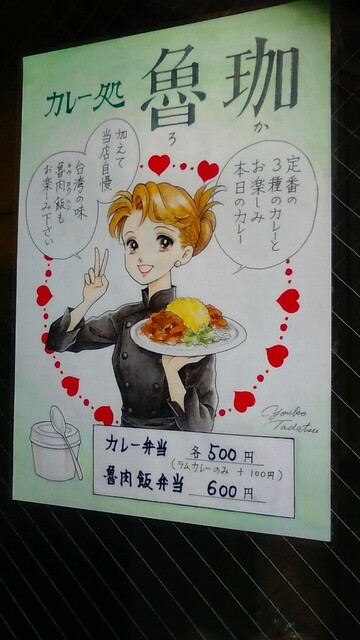 カレー処 魯珈
ろ か
定番の
3種のカレーと
お楽しみ
本日のカレー
加えて
当店自慢
台湾の味
魯肉飯も
お楽しみ下さい
カレー弁当 各500円
(ラムカレーのみ +100円)
魯肉飯弁当 600円